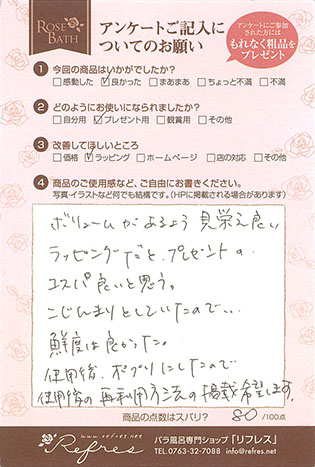 ROSE BATH
アンケートご記入に
ついてのお願い
アンケートにご参加
された方には
もれなく粗品を
プレゼント
1 今回の商品はいかがでしたか?
□感動した ☑良かった □まあまあ □ちょっと不満 □不満
2 どのようにお使いになられましたか?
□自分用 ☑プレゼント用 □観賞用 □その他
3 改善してほしいところ
□価格 ☑ラッピング □ホームページ □店の対応 □その他
4 商品のご使用感など、ご自由にお書きください。
写真・イラストなど何でも結構です。(HPに掲載される場合があります)
ボリュームがあるよう見栄え良い
ラッピングだと、プレゼントの
コスパ良いと思う。
こじんまりとしていたので…
鮮度は良かった。
使用後、ポプリにしたので
使用後の再利用方法の掲載希望します。
商品の点数はズバリ? 80 /100点
www.refres.net
Refres
バラ風呂専門ショップ「リフレス」
TEL.0763-32-7088 info@refres.net